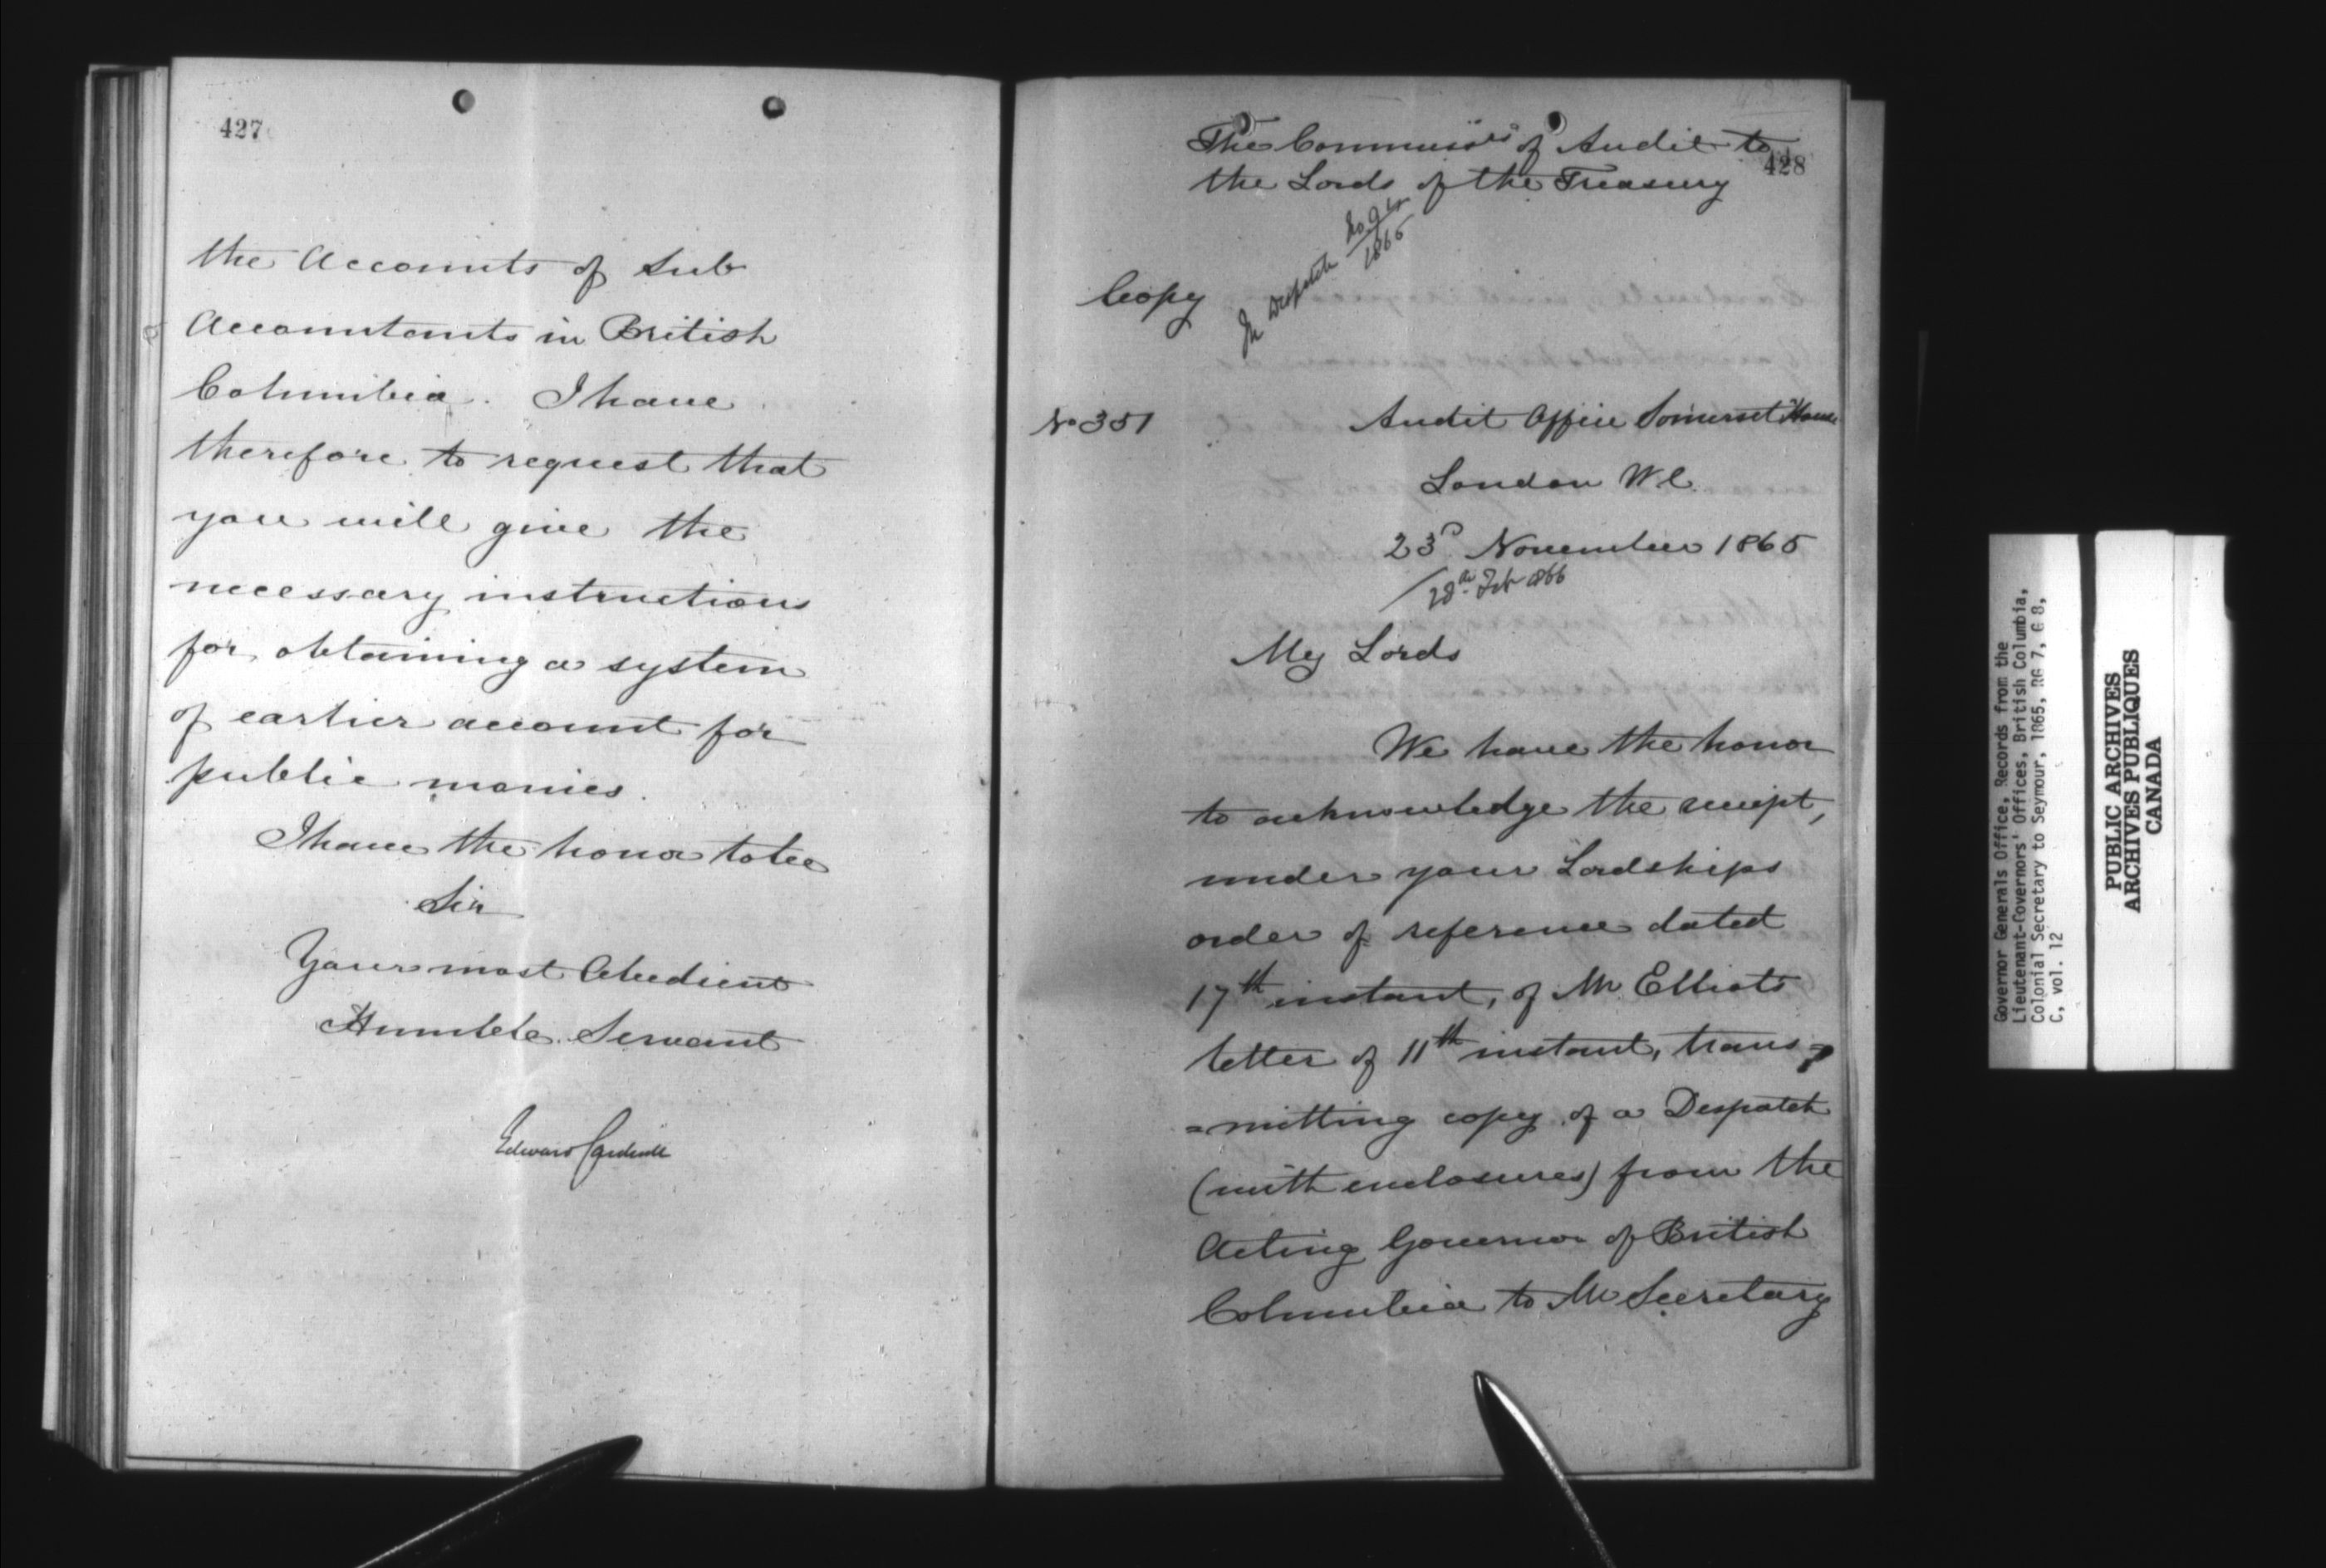 427
the Accounts of Sub
Accountants in British
Columbia. I have
therefore to request that
you will give the
necessary instructions
for obtaining a system
of earlier account for
public monies.
I have the honor to be
Sir
Your most Obedient
Humble Servant
Edward Cardwell
428
The Commissrs of Audit to
the Lords of the Treasury
In Despatch
1865
Copy
No 351
Audit Office Somerset House
London W.C.
23d November 1865
28th Feb 1866
My Lords
We have the honor
to acknowledge the receipt,
under your Lordships
order of reference dated
17th instant, of Mr Elliots
letter of 11th instant, trans=
=mitting copy of a Despatch
(with enclosures) from the
Acting Governor of British
Columbia to Mr Secretary
Governor Generals Office, Records from the
Lieutenant-Governors' Offices, British Columbia,
Colonial Secretary to Seymour, 1865, RG 7, G 8,
C, vol. 12
PUBLIC ARCHIVES
ARCHIVES PUBLIQUES
CANADA